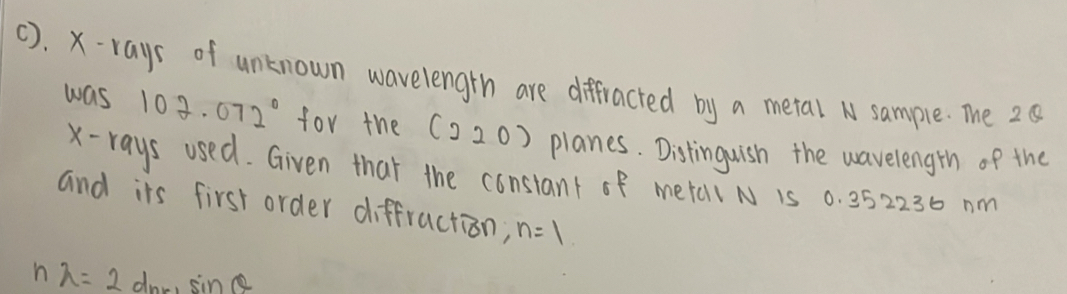 c). X-rays of unknown wavelength are diffracted by a metal N sample. The 2θ
was 102.072° for the (220) planes. Distinguish the wavelength of the
x-rays used. Given that the constant of metal N is 0.352236 nm
and its first order diffraction, n=1
nλ= 2 dhkl sin θ